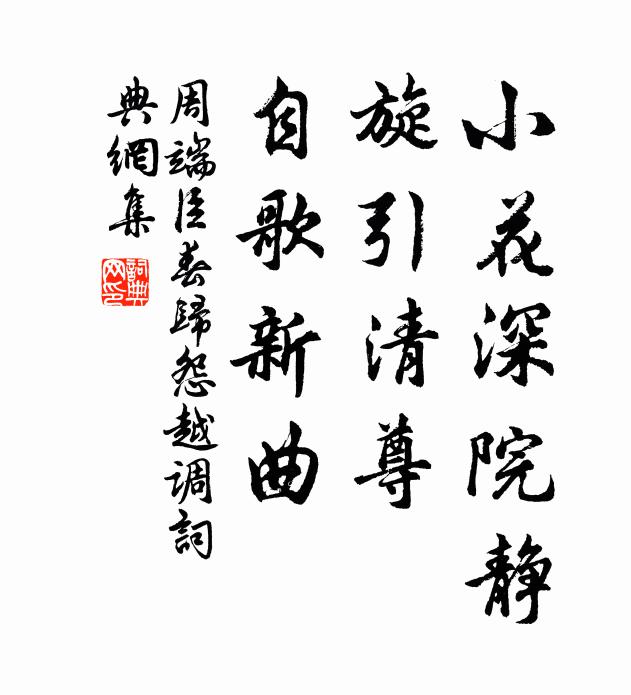 小花深院静
旋引清尊
自歌新曲
周端臣春歸怨越调詞
典網集
詞典网印